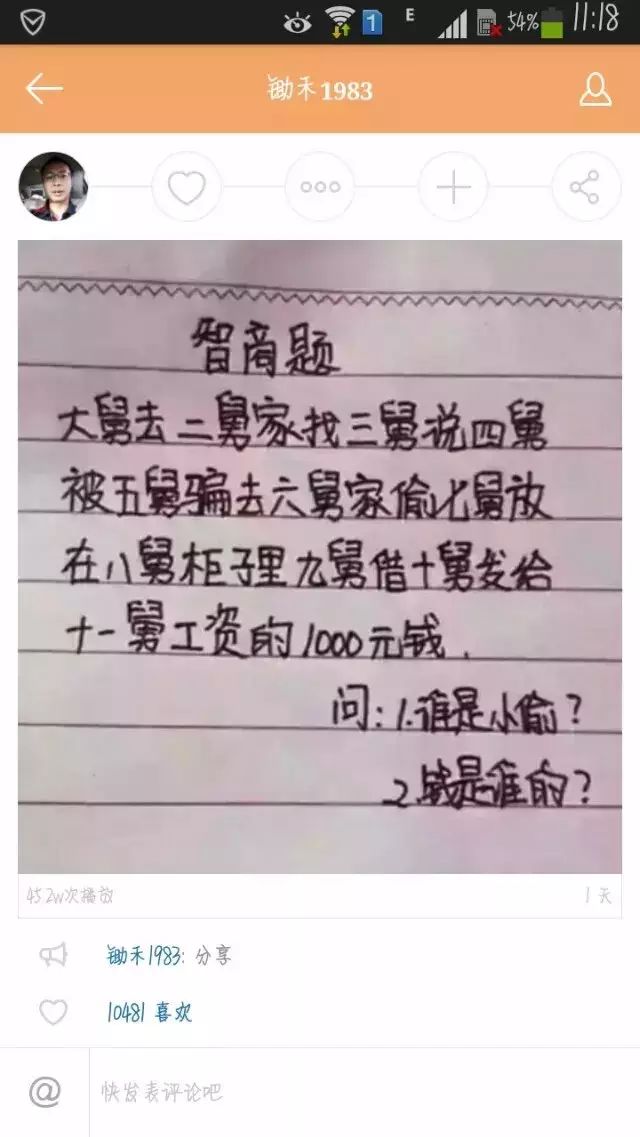 1 E 54% 11:18
锄禾1983
智商题
大舅去二舅家找三舅说四舅
被五舅骗去六舅家偷七舅放
在八舅柜子里九舅借十舅发给
十一舅工资的1000元钱.
问:1.谁是小偷?
2.钱是谁的?
452w次播放 1天
锄禾1983: 分享
10481 喜欢
@ 快发表评论吧